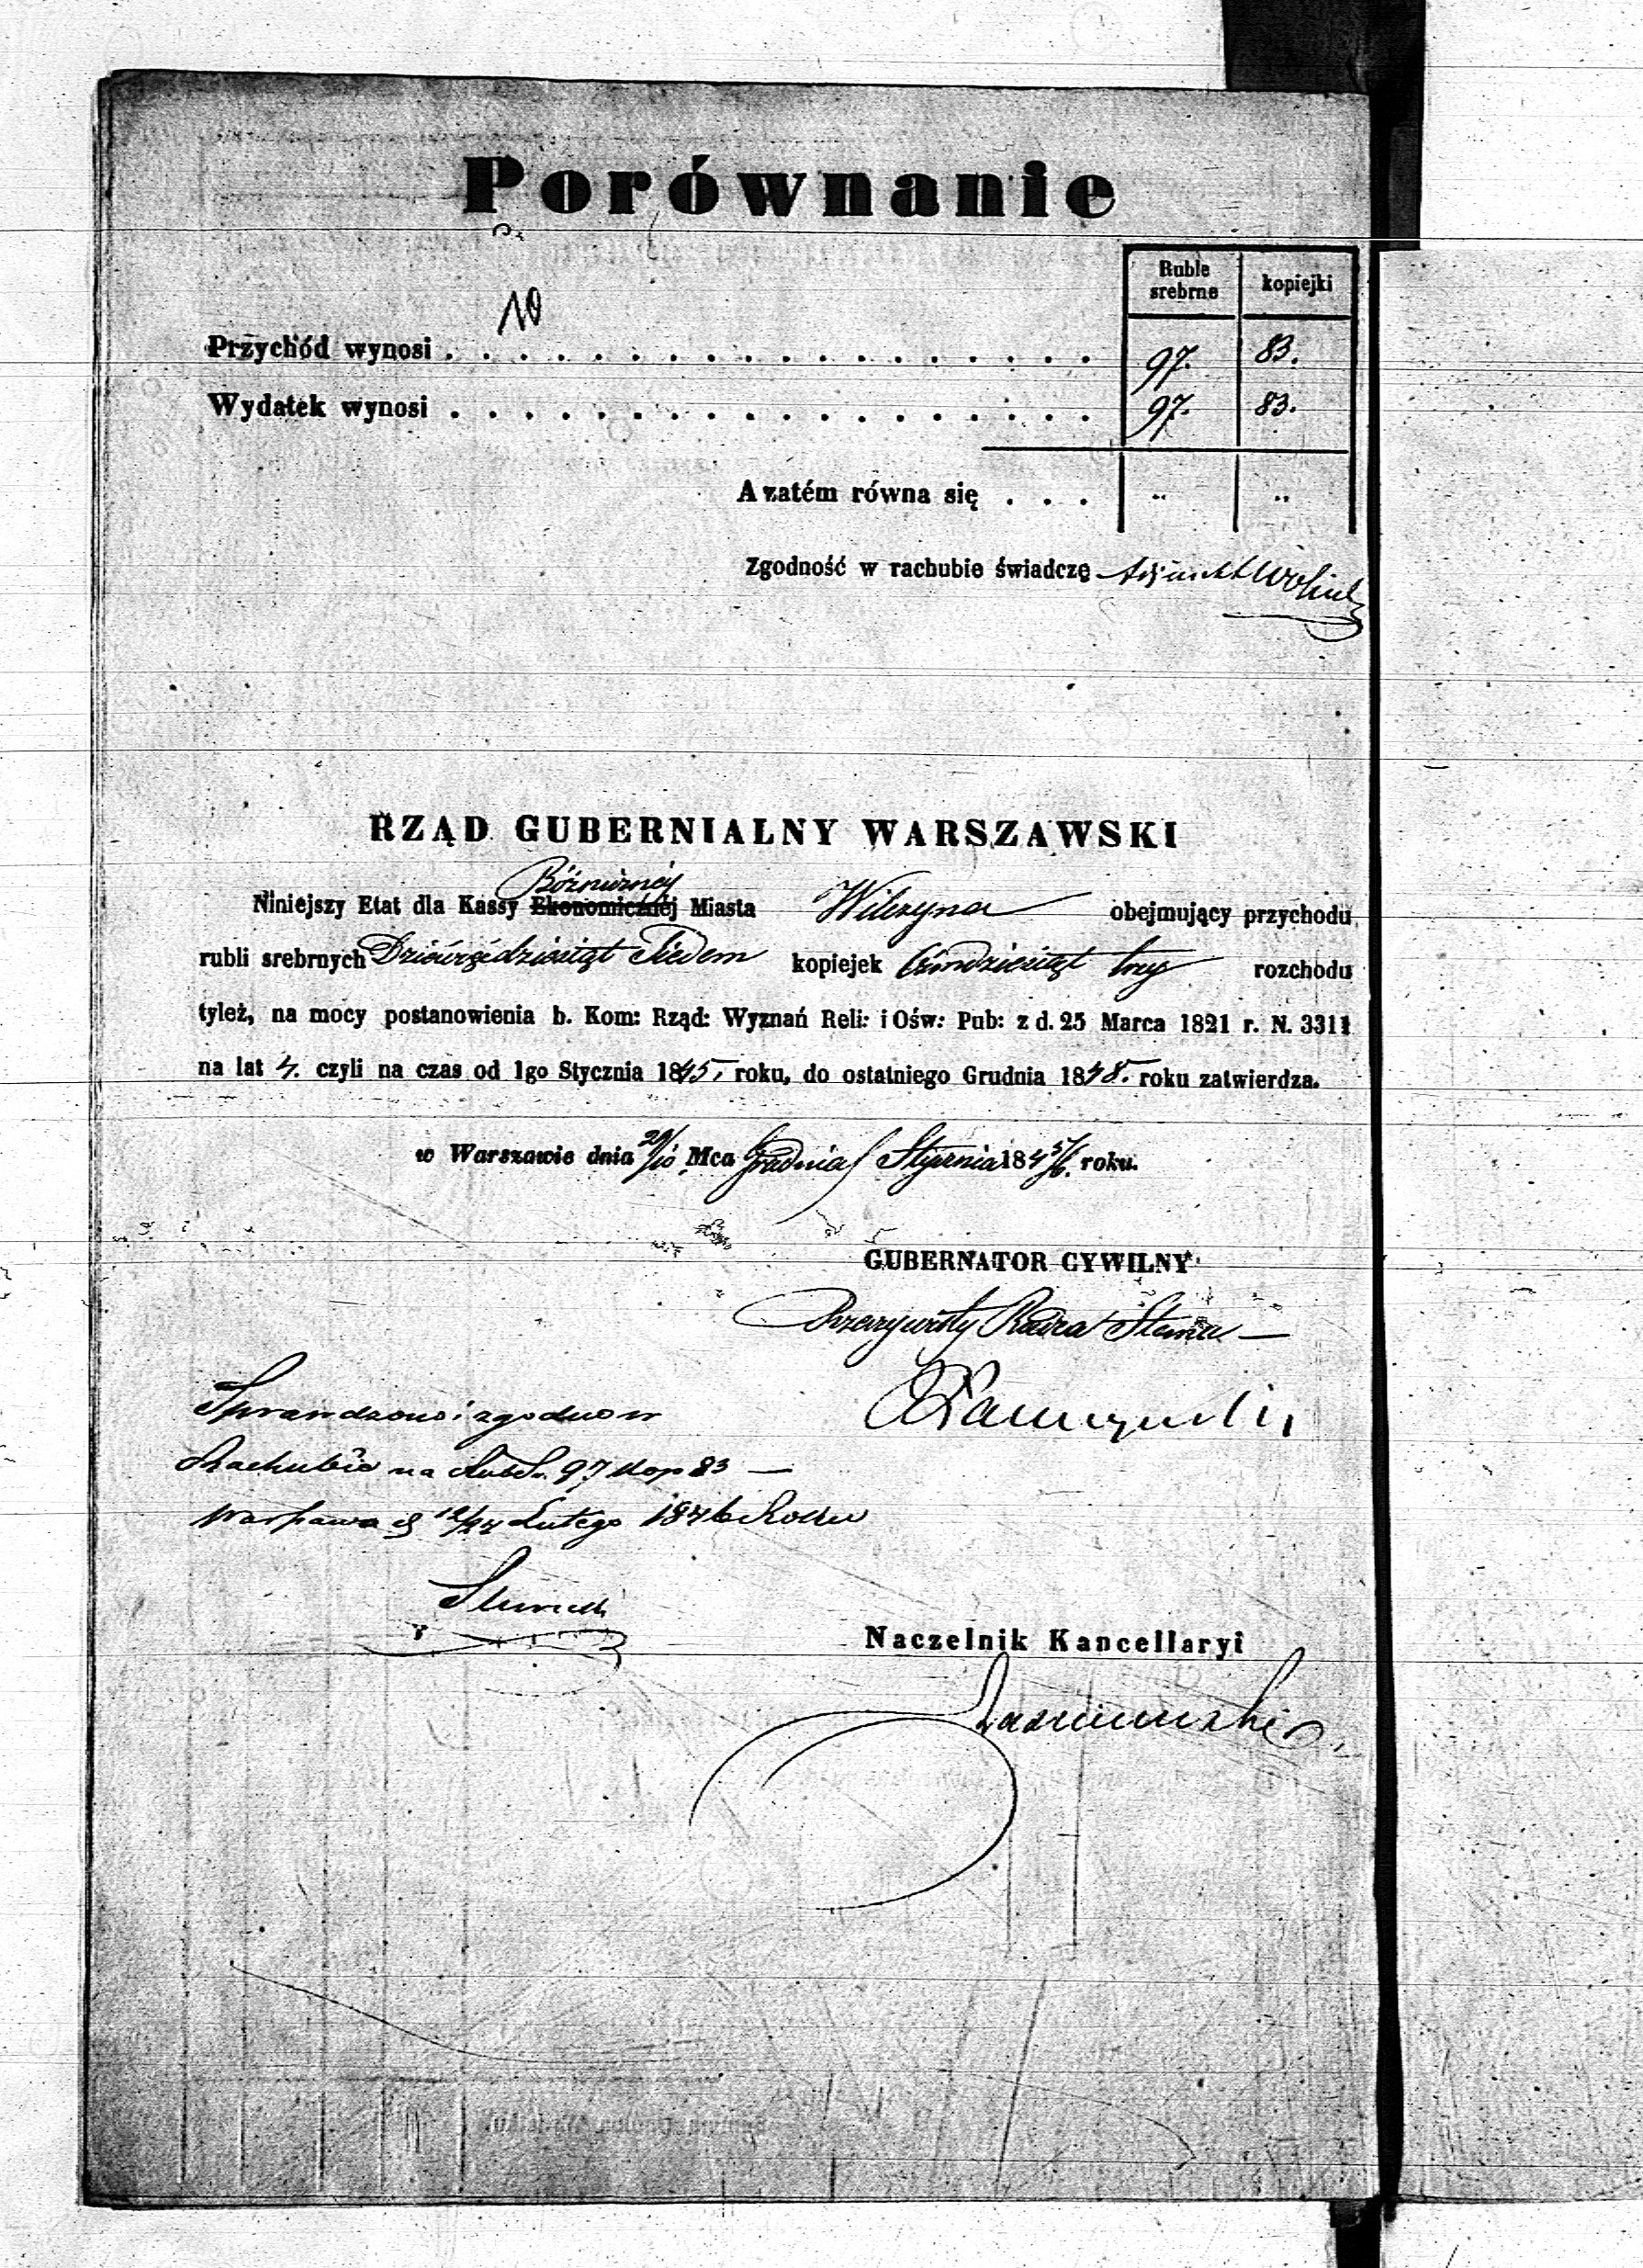 Porównanie
Ruble srebrne kopiejki
10
Przychód wynosi . . . . . . . . . . . . . . . . . . 97. 83.
Wydatek wynosi . . . . . . . . . . . . . . . . . . 97. 83.
A zatém równa się . . . „ „
Zgodność w rachubie świadczę Adjunkt
RZĄD GUBERNIALNY WARSZAWSKI
Bóżnicznéj
Niniejszy Etat dla Kassy Ekonomicznéj Miasta Wilczyna obejmujący przychodu
rubli srebrnych Dziewięćdziesiąt Siedem kopiejek Ośmdziesiąt trzy rozchodu
tyleż, na mocy postanowienia b. Kom: Rząd: Wyznań Reli: i Ośw: Pub: z d. 25 Marca 1821 r. N. 3311
na lat 4. czyli na czas od 1go Stycznia 1845. roku, do ostatniego Grudnia 1848. roku zatwierdza.
w Warszawie dnia 29/10 Mca Grudnia/Stycznia 1845/6. roku.
GUBERNATOR CYWILNY
Rzeczywisty Radca Stanu
Sprawdzono i zgodno w
Rachubie na RubSr. 97 kop 83
Warszawa d 12/24 Lutego 1846 Roku
Naczelnik Kancellaryi